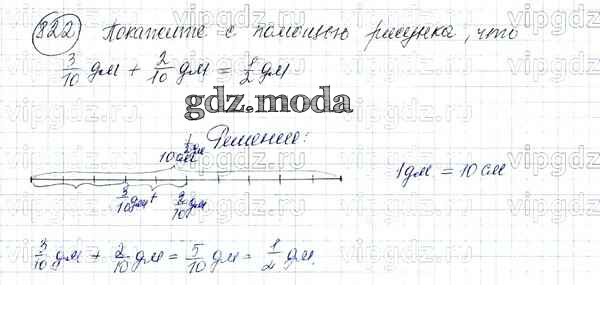 822 Покажите с помощью рисунка, что
3/10 дм + 2/10 дм = 1/2 дм
gdz.moda
Решение:
1/2 дм
10 см
1 дм = 10 см
3/10 дм + 2/10 дм
3/10 дм + 2/10 дм = 5/10 дм = 1/2 дм.
vipgdz.ru